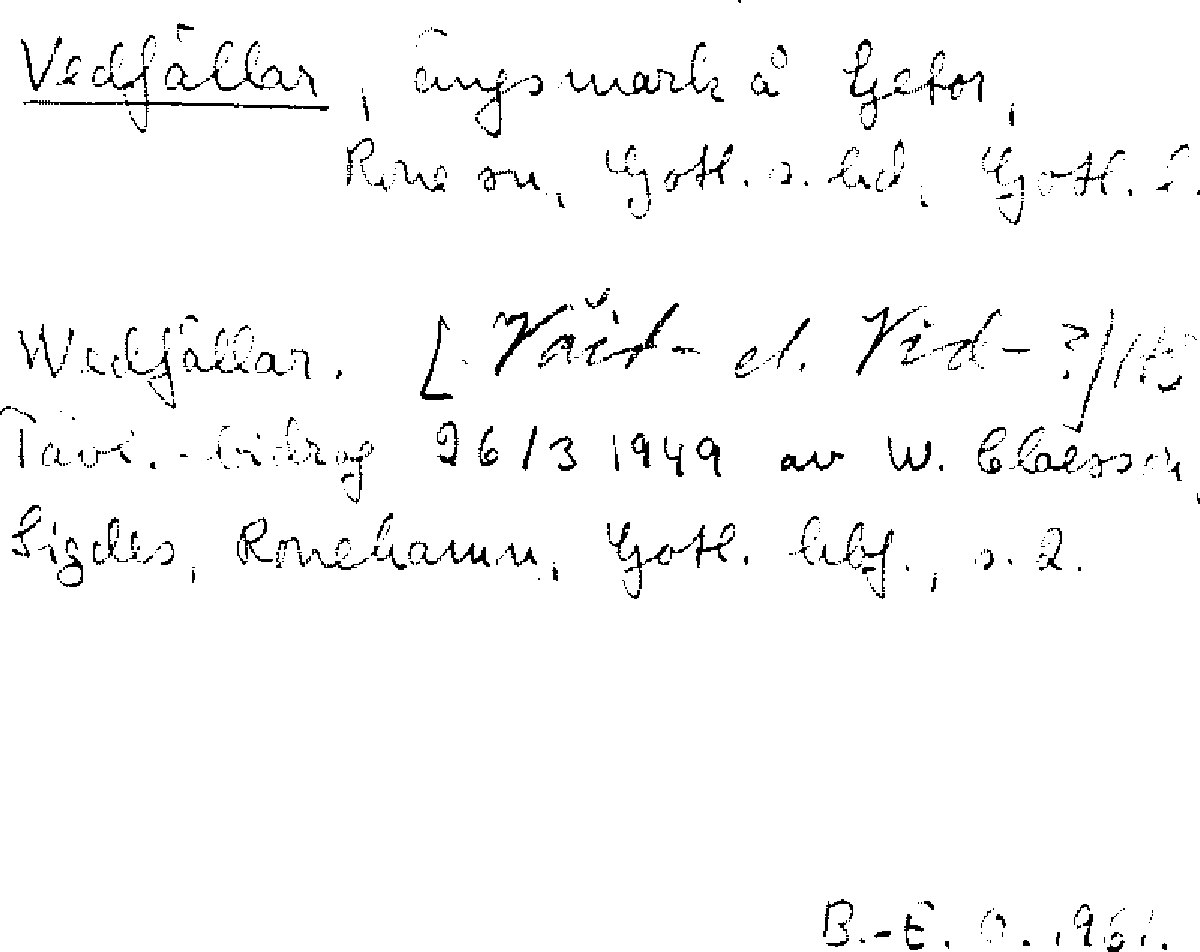 Vedfällar, ängsmark å Getor,
Rone sn, Gotl. s. hd, Gotl. l.
Wedfällar. [Väid- el. Vid- ?]
Tävl.-bidrag 26/3 1949 av W. Claesson,
Sigdes, Ronehamn, Gotl. hbf., s. 2.
B.-E. O. 1961.